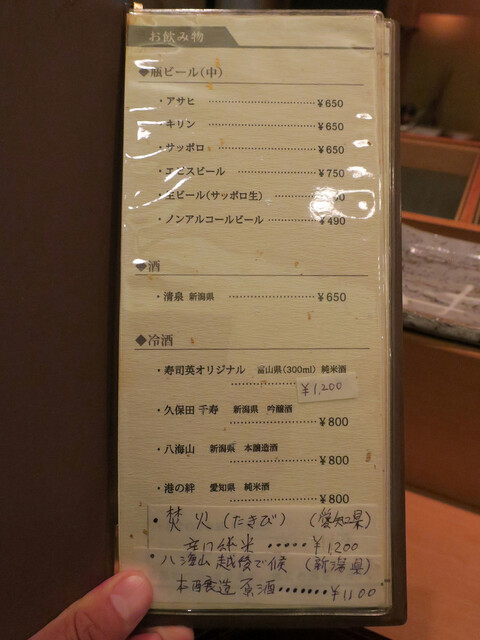 お飲み物
◆瓶ビール(中)
・アサヒ ………………… ¥650
・キリン ………………… ¥650
・サッポロ ………………… ¥650
・エビスビール ………………… ¥750
・生ビール(サッポロ生) …………
・ノンアルコールビール ………… ¥490
◆酒
・清泉 新潟県 ………………… ¥650
◆冷酒
・寿司英オリジナル 富山県(300ml) 純米酒
………………… ¥1,200
・久保田 千寿 新潟県 吟醸酒
………………… ¥800
・八海山 新潟県 本醸造酒
………………… ¥800
・港の絆 愛知県 純米酒
………………… ¥800
・焚火(たきび) (愛知県)
辛口純米 ・・・・・ ¥1,200
・八海山 越後で候 (新潟県)
本醸造原酒 ・・・・・・・ ¥1100